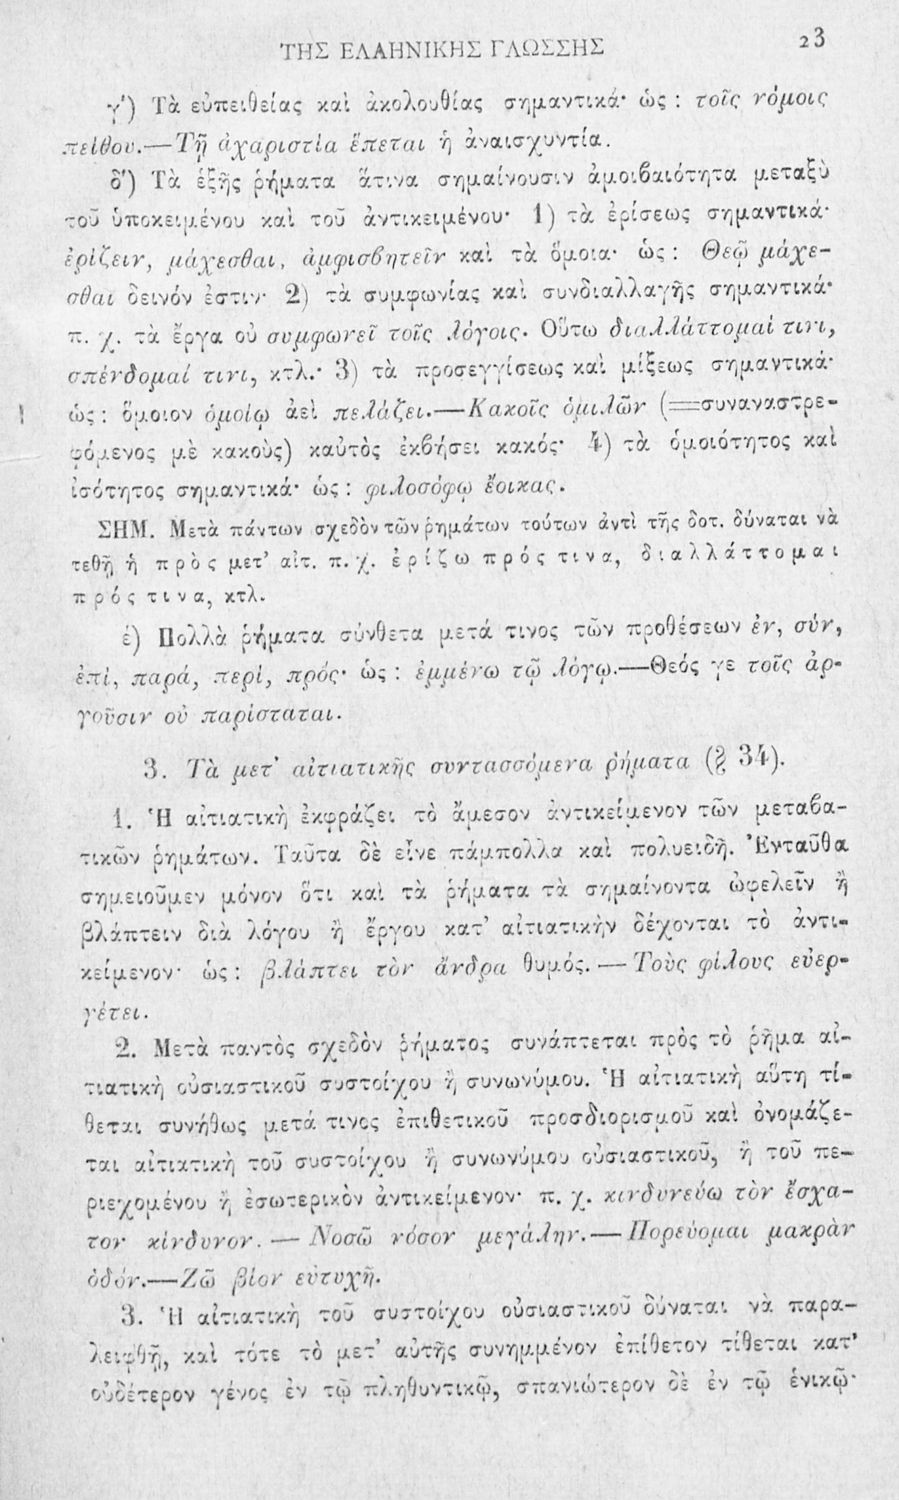 ΤΗΣ ΕΛΛΗΝΙΚΗΣ ΓΛΩΣΣΗΣ 23
γ') Τὰ εὐπειθείας καὶ ἀκολουθίας σημαντικά· ὡς : τοῖς νόμοις
πείθου.—Τῇ ἀχαριστίᾳ ἕπεται ἡ ἀναισχυντία.
δ') Τὰ ἑξῆς ῥήματα ἅτινα σημαίνουσιν ἀμοιβαιότητα μεταξὺ
τοῦ ὑποκειμένου καὶ τοῦ ἀντικειμένου· 1) τὰ ἐρίσεως σημαντικά·
ἐρίζειν, μάχεσθαι, ἀμφισβητεῖν καὶ τὰ ὅμοια· ὡς : Θεῷ μάχε-
σθαι δεινόν ἐστιν· 2) τὰ συμφωνίας καὶ συνδιαλλαγῆς σημαντικά·
π. χ. τὰ ἔργα οὐ συμφωνεῖ τοῖς λόγοις. Οὕτω διαλλάττομαί τινι,
σπένδομαί τινι, κτλ.· 3) τὰ προσεγγίσεως καὶ μίξεως σημαντικά·
ὡς : ὅμοιον ὁμοίῳ ἀεὶ πελάζει.—Κακοῖς ὁμιλῶν (=συναναστρε-
φόμενος μὲ κακοὺς) καὐτὸς ἐκβήσει κακός· 4) τὰ ὁμοιότητος καὶ
ἰσότητος σημαντικά· ὡς : φιλοσόφῳ ἔοικας.
ΣΗΜ. Μετὰ πάντων σχεδὸν τῶν ῥημάτων τούτων ἀντὶ τῆς δοτ. δύναται νὰ
τεθῇ ἡ πρὸς μετ' αἰτ. π. χ. ἐρίζω πρός τινα, διαλλάττομαι
πρός τινα, κτλ.
έ) Πολλὰ ῥήματα σύνθετα μετά τινος τῶν προθέσεων ἐν, σύν,
ἐπί, παρά, περί, πρός· ὡς : ἐμμένω τῷ λόγῳ.—Θεός γε τοῖς ἀρ-
γοῦσιν οὐ παρίσταται.
3. Τὰ μετ' αἰτιατικῆς συντασσόμενα ῥήματα (§ 34).
1. Ἡ αἰτιατικὴ ἐκφράζει τὸ ἄμεσον ἀντικείμενον τῶν μεταβα-
τικῶν ῥημάτων. Ταῦτα δὲ εἶνε πάμπολλα καὶ πολυειδῆ. Ἐνταῦθα
σημειοῦμεν μόνον ὅτι καὶ τὰ ῥήματα τὰ σημαίνοντα ὠφελεῖν ἢ
βλάπτειν διὰ λόγου ἢ ἔργου κατ' αἰτιατικὴν δέχονται τὸ ἀντι-
κείμενον· ὡς : βλάπτει τὸν ἄνδρα θυμός. — Τοὺς φίλους εὐερ-
γέτει.
2. Μετὰ παντὸς σχεδὸν ῥήματος συνάπτεται πρὸς τὸ ῥῆμα αἰ-
τιατικὴ οὐσιαστικοῦ συστοίχου ἢ συνωνύμου. Ἡ αἰτιατικὴ αὕτη τί-
θεται συνήθως μετά τινος ἐπιθετικοῦ προσδιορισμοῦ καὶ ὀνομάζε-
ται αἰτιατικὴ τοῦ συστοίχου ἢ συνωνύμου οὐσιαστικοῦ, ἢ τοῦ πε-
ριεχομένου ἢ ἐσωτερικὸν ἀντικείμενον· π. χ. κινδυνεύω τὸν ἔσχα-
τον κίνδυνον. — Νοσῶ νόσον μεγάλην.—Πορεύομαι μακρὰν
ὁδόν.—Ζῶ βίον εὐτυχῆ.
3. Ἡ αἰτιατικὴ τοῦ συστοίχου οὐσιαστικοῦ δύναται νὰ παρα-
λειφθῇ, καὶ τότε τὸ μετ' αὐτῆς συνημμένον ἐπίθετον τίθεται κατ'
οὐδέτερον γένος ἐν τῷ πληθυντικῷ, σπανιώτερον δὲ ἐν τῷ ἑνικῷ·